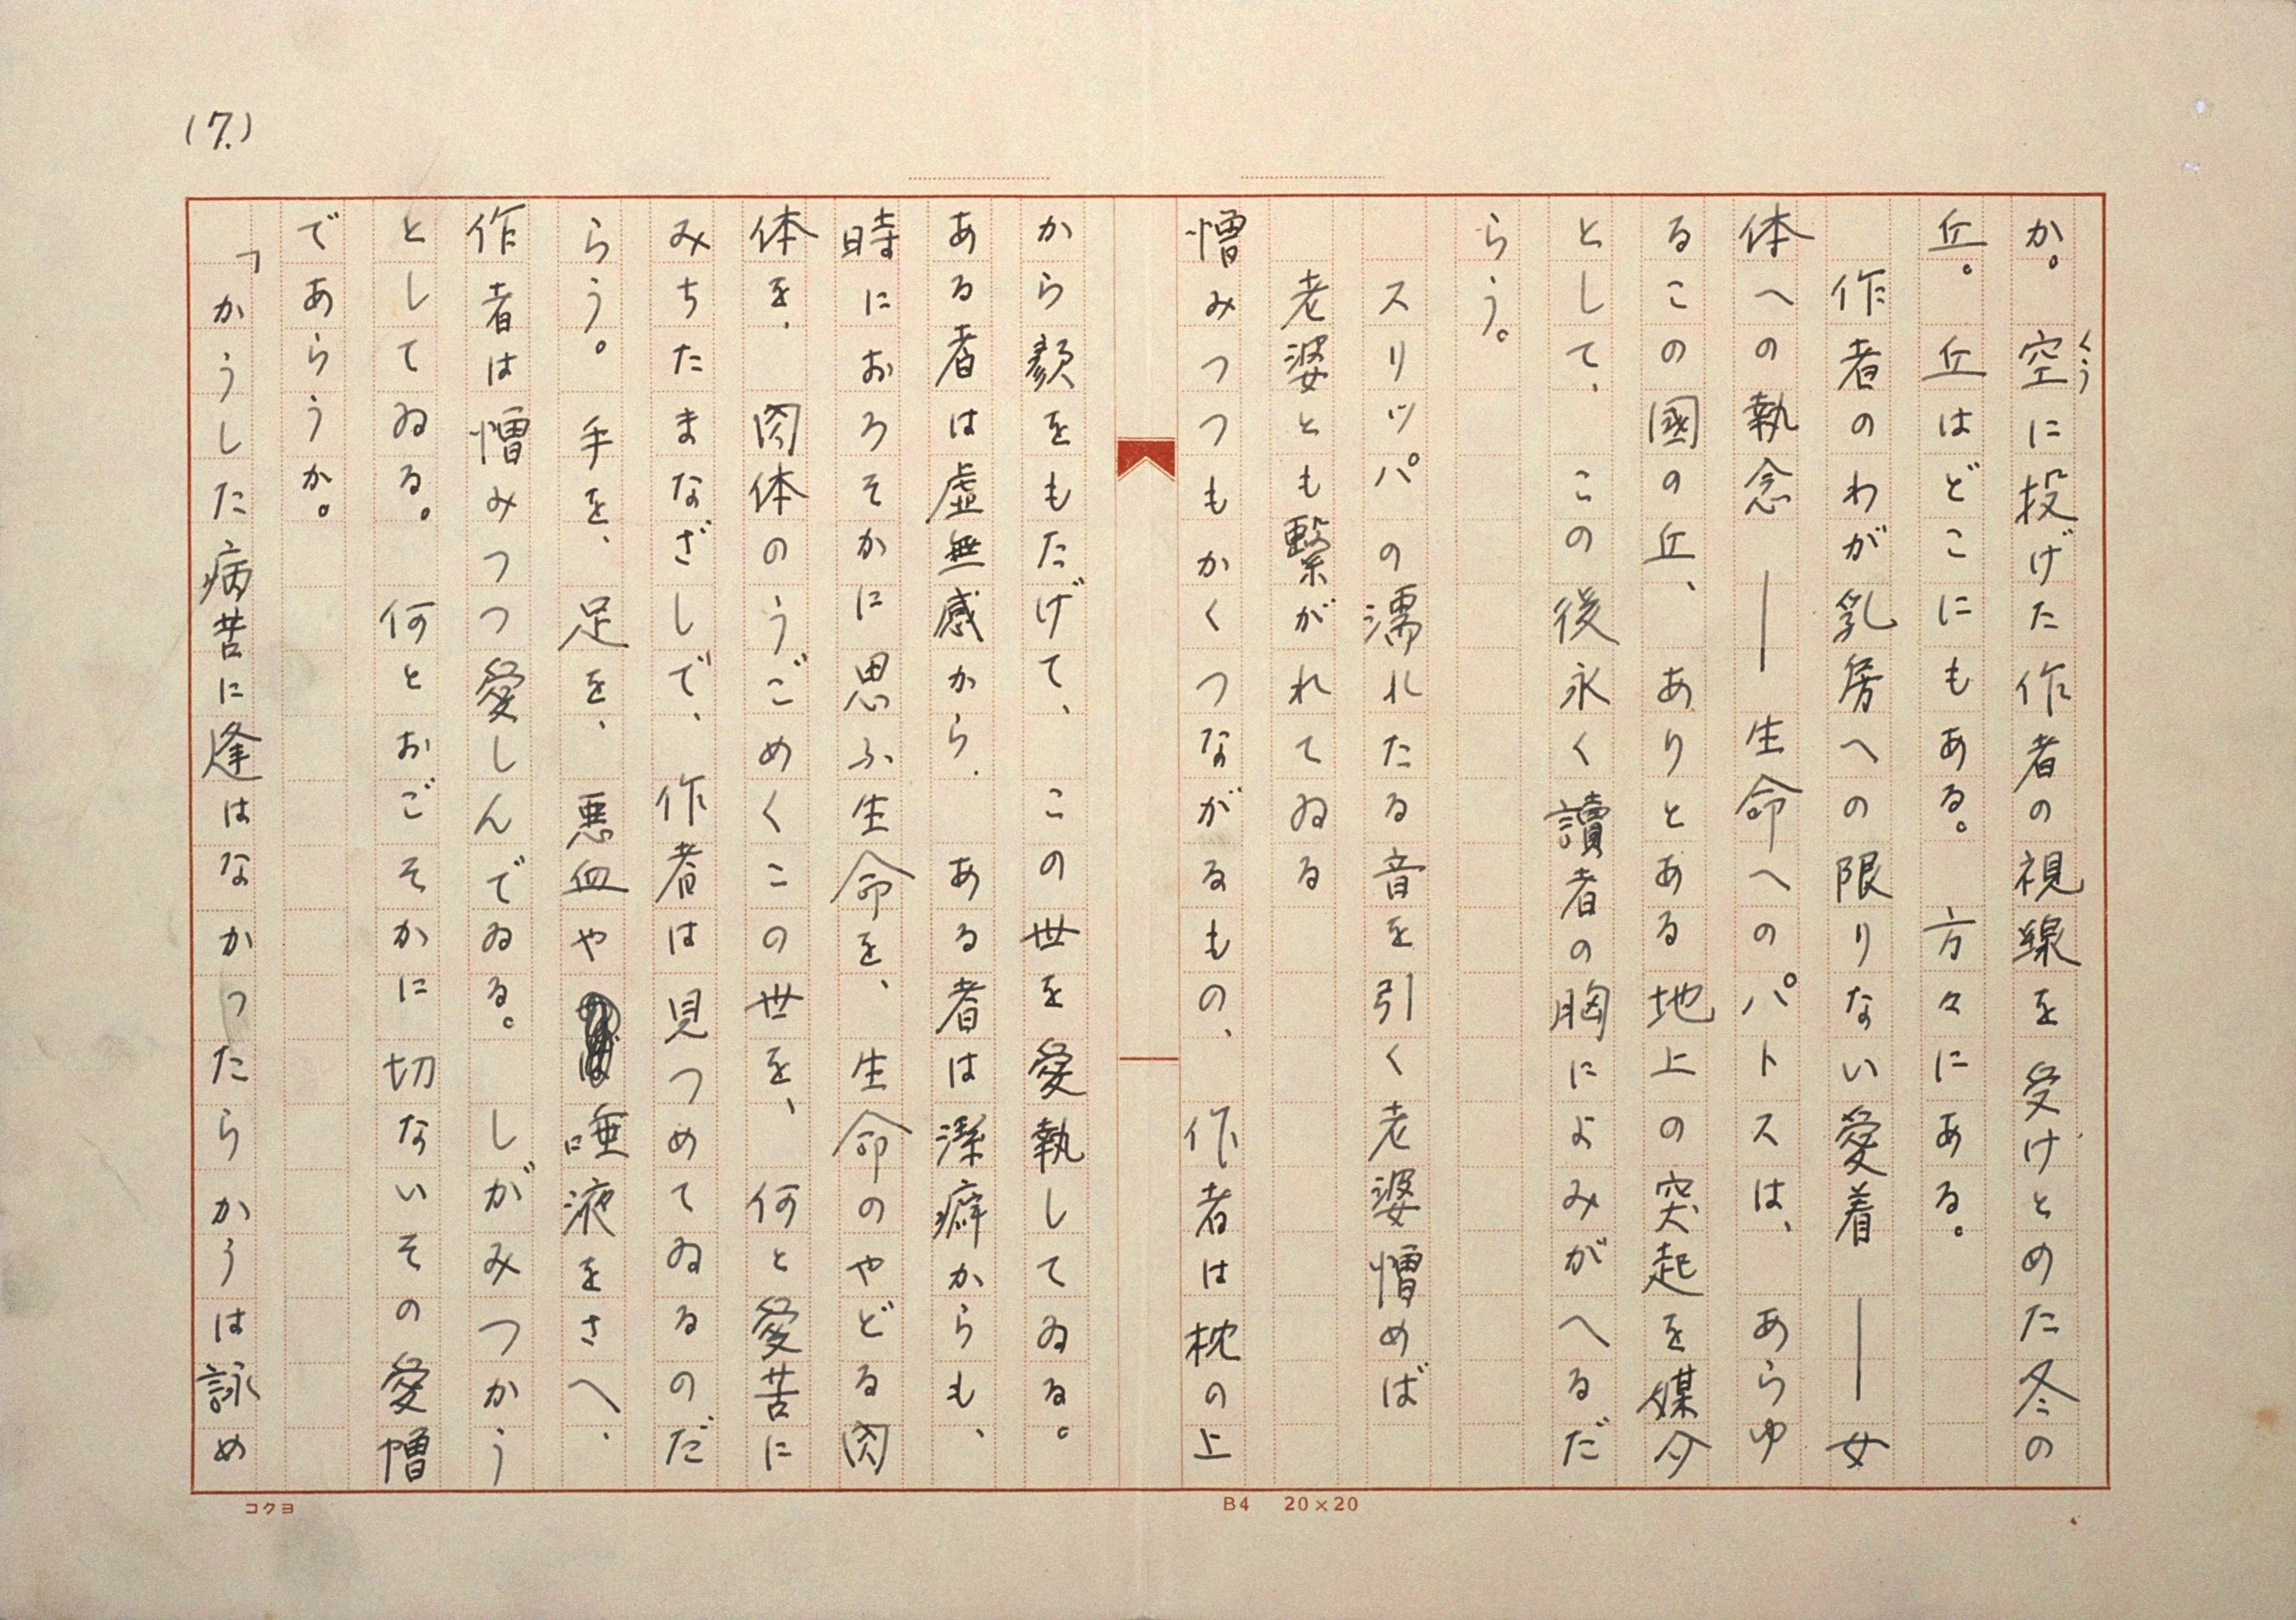 (7.)
か。空に投げた作者の視線を受けとめた冬の
くう
丘。丘はどこにもある。方々にある。
作者のわが乳房への限りない愛着――女
体への執念――生命へのパトスは、あらゆ
るこの國の丘、ありとある地上の突起を媒介
として、この後永く讀者の胸によみがへるだ
らう。
スリッパの濡れたる音を引く老婆憎めば
老婆とも繋がれてゐる
憎みつつもかくつながるもの、作者は枕の上
から顔をもたげて、この世を愛執してゐる。
ある者は虚無感から、ある者は潔癖からも、
時におろそかに思ふ生命を、生命のやどる肉
体を、肉体のうごめくこの世を、何と愛苦に
みちたまなざしで、作者は見つめてゐるのだ
らう。手を、足を、悪血や唾液をさへ、
作者は憎みつつ愛しんでゐる。しがみつかう
としてゐる。何とおごそかに切ないその愛憎
であらうか。
「かうした病苦に逢はなかったらかうは詠め
コクヨ
B4 20×20